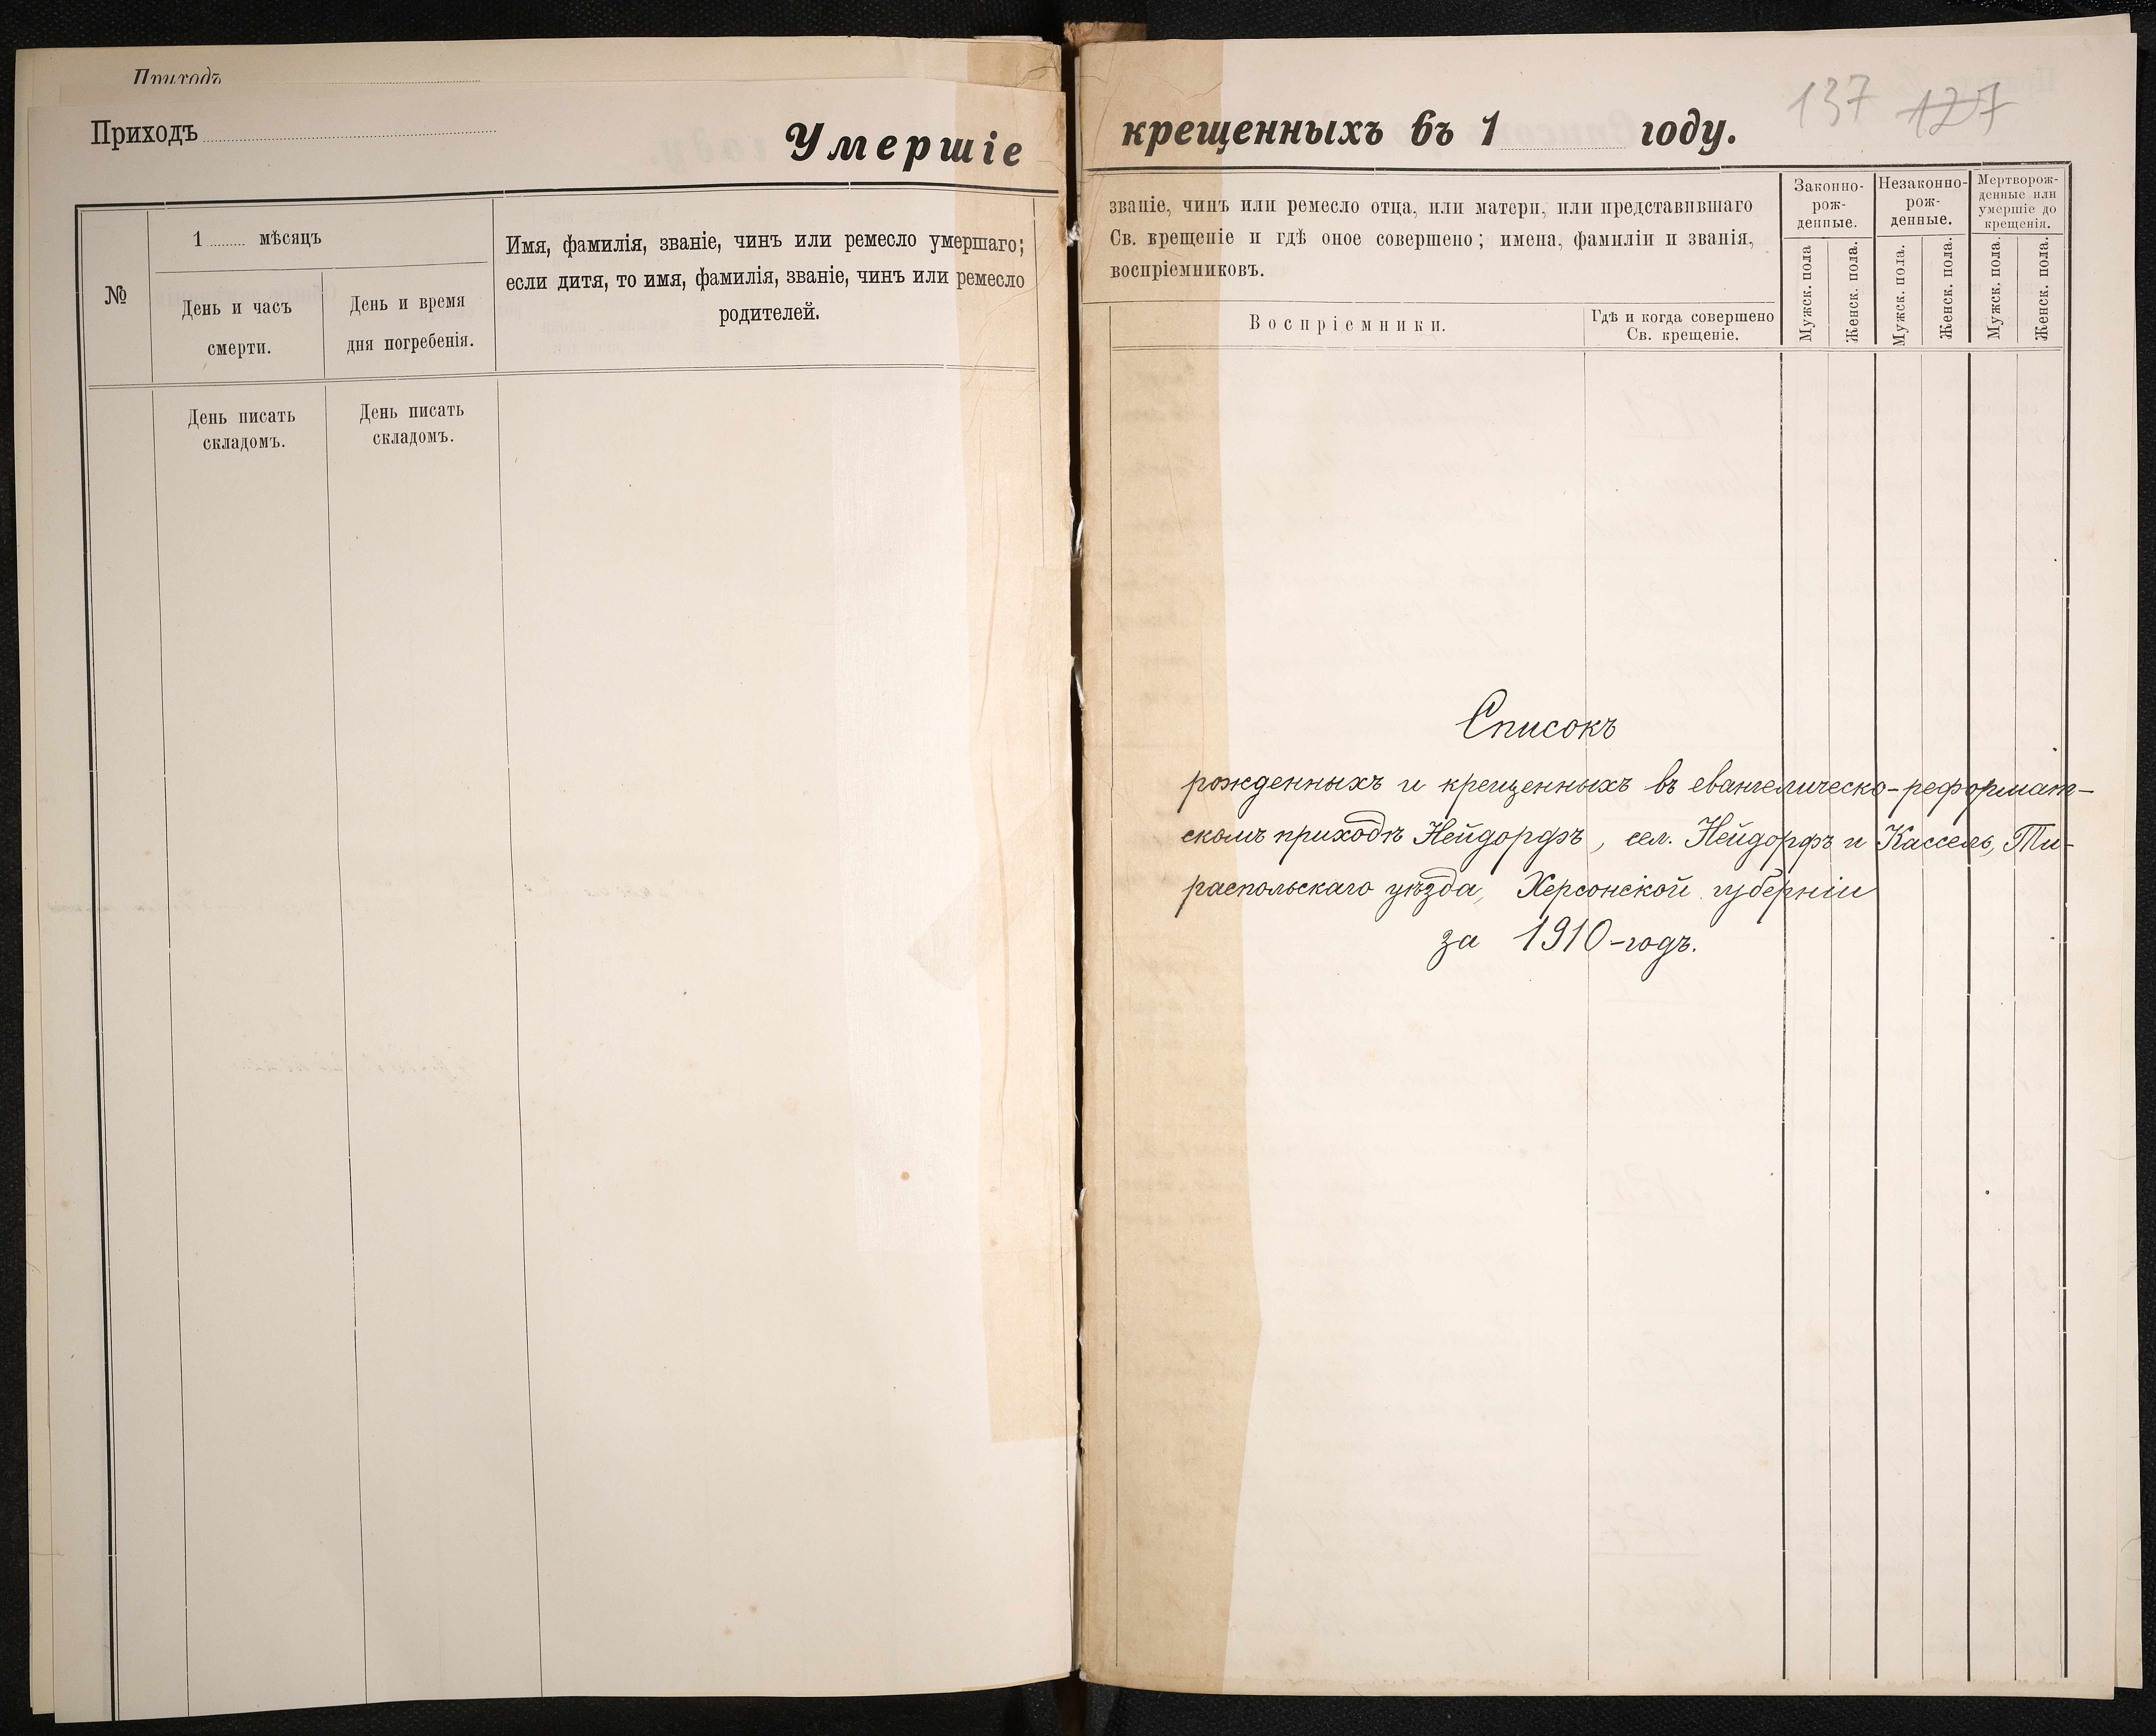 Приходъ
Приходъ
Умершіе
№
1 ......... мѣсяцъ
День и часъ
смерти.
День и время
дня погребенія.
Имя, фамилія, званіе, чинъ или ремесло умершаго;
если дитя, то имя, фамилія, званіе, чинъ или ремесло
родителей.
День писать
складомъ.
День писать
складомъ.
137 127
крещенныхъ въ 1 году.
званіе, чинъ или ремесло отца, или матери, или представившаго
Св. крещеніе и гдѣ оное совершено; имена, фамиліи и званія,
воспріемниковъ.
Воспріемники.
Гдѣ и когда совершено
Св. крещеніе.
Законно-
рож-
денные.
Незаконно-
рож-
денные.
Мертворож-
денные или
умершіе до
крещенія.
Мужск. пола
Женск. пола.
Мужск. пола.
Женск. пола.
Мужск. пола.
Женск. пола.
Списокъ
рожденныхъ и крещенныхъ въ евангелическо-реформат-
скомъ приходѣ Нейдорфъ, сел. Нейдорфъ и Кассель, Ти-
распольскаго уѣзда, Херсонской губерніи
за 1910-годъ.